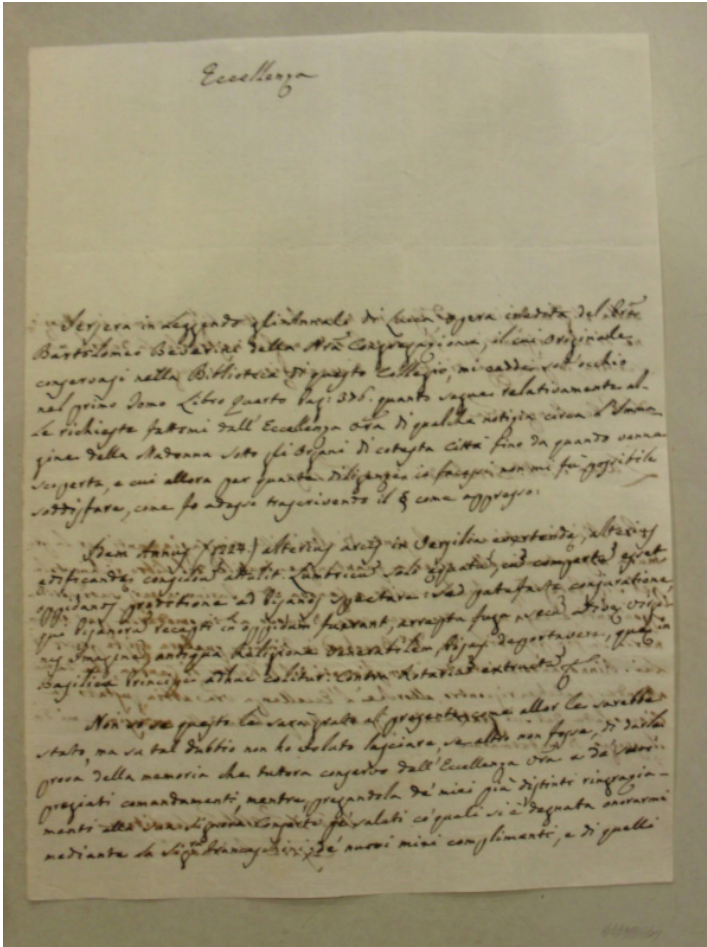 Eccellenza
Jerjera in leggendo gli Annali di Lucca opera inedita del
Bartolomeo Beverini della Congregazione, il cui originale
conservasi nella Biblioteca di questo Collegio, mi cadde sott'occhio
nel primo Tomo Libro quarto Pag: 376. quanto segue relativamente al-
le richieste fattemi dall'Eccellenza Vra di qualche notizia circa l'Imma-
gine della Madonna sotto gli Organi di cotesta Città fino da quando venne
scoperta, e cui allora per quante diligenze io facessi non mi fu possibile
soddisfare, come fo adesso trascrivendo il § come appresso:
Idem Annus alterius arcis in Versilia evertendae, alterius
edificandae consilium attulit
oppidanos proditione ad Pisanos spectare: sed patefacta conjuratione
qui Pisanorum recepti in oppidum fuerant, arrepta fuga
Imaginem antiqua Religione venerabilem, Pisas deportavere, quae in
Basilica Principe adhuc colitur. Contra Rotarium extructa
Non se questo le sarà grato al presente come allor le sarebbe
stato, ma su tal dubbio non ho voluto lasciare, se altro non fosse, di darle
prova della memoria che tuttora conservo dell'Eccellenza Vra e de' suoi
pregiati comandamenti, mentre, pregandola de' miei più distinti ringrazia-
menti alla sua Signora Consorte pe' saluti co' quali si è degnata onorarmi
mediante la de' nuovi miei complimenti, e di quelli